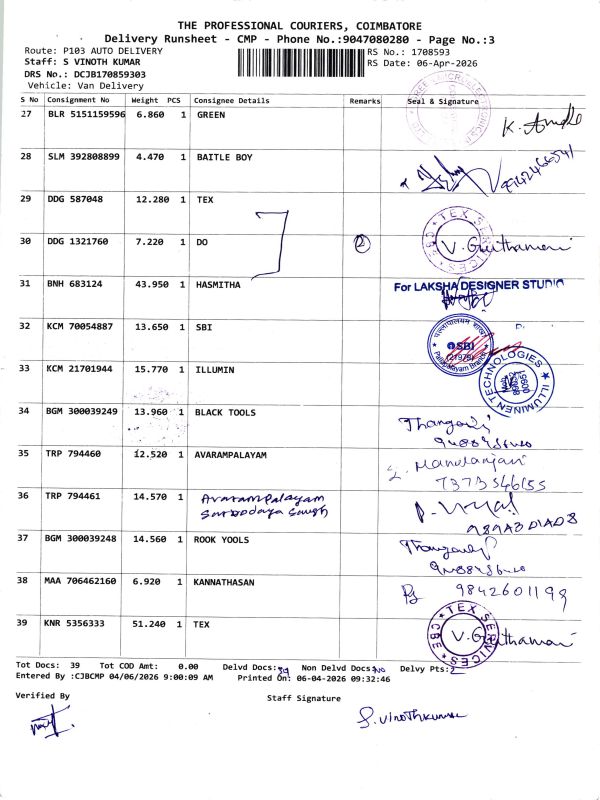 THE PROFESSIONAL COURIERS, COIMBATORE
Delivery Runsheet - CMP - Phone No.:9047080280 - Page No.:3
Route: P103 AUTO DELIVERY
RS No.: 1708593
Staff: S VINOTH KUMAR
RS Date: 06-Apr-2026
DRS No.: DCJB170859303
Vehicle: Van Delivery
S No Consignment No Weight PCS Consignee Details Remarks Seal & Signature
27 BLR 5151159596 6.860 1 GREEN
28 SLM 392808899 4.470 1 BAITLE BOY
29 DDG 587048 12.280 1 TEX
30 DDG 1321760 7.220 1 DO 2 TEX SERVICES CBE
31 BNH 683124 43.950 1 HASMITHA For LAKSHA DESIGNER STUDIO
32 KCM 70054887 13.650 1 SBI SBI
33 KCM 21701944 15.770 1 ILLUMIN ILLUMINEN TECHNOLOGIES
34 BGM 300039249 13.960 1 BLACK TOOLS
35 TRP 794460 12.520 1 AVARAMPALAYAM
7373546155
36 TRP 794461 14.570 1 Avarampalayam
37 BGM 300039248 14.560 1 ROOK YOOLS
38 MAA 706462160 6.920 1 KANNATHASAN 9842601199
39 KNR 5356333 51.240 1 TEX TEX SERVICES CBE
Tot Docs: 39 Tot COD Amt: 0.00 Delvd Docs: Non Delvd Docs: Delvy Pts:2
Entered By :CJBCMP 04/06/2026 9:00:09 AM Printed On: 06-04-2026 09:32:46
Verified By
Staff Signature
S. Vinothkumar